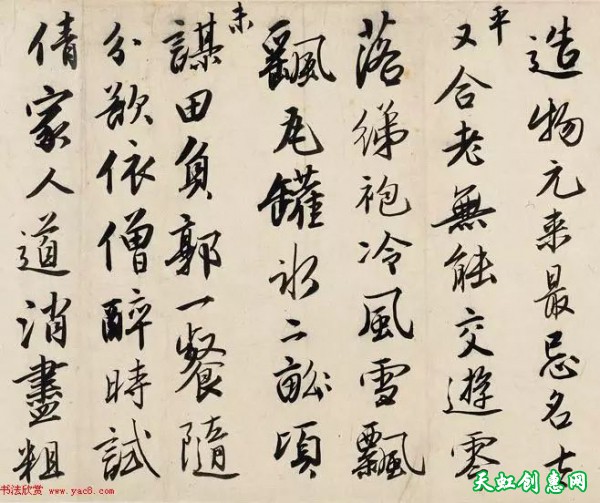 造物元來最忌名太
平又合老無能交遊零
落綈袍冷風雪飄
颻瓦罐冰二畝頃
未謀田負郭一餐隨
分欲依僧醉時試
倩家人道消盡粗
书法欣赏 www.yac8.com
天虹创惠网